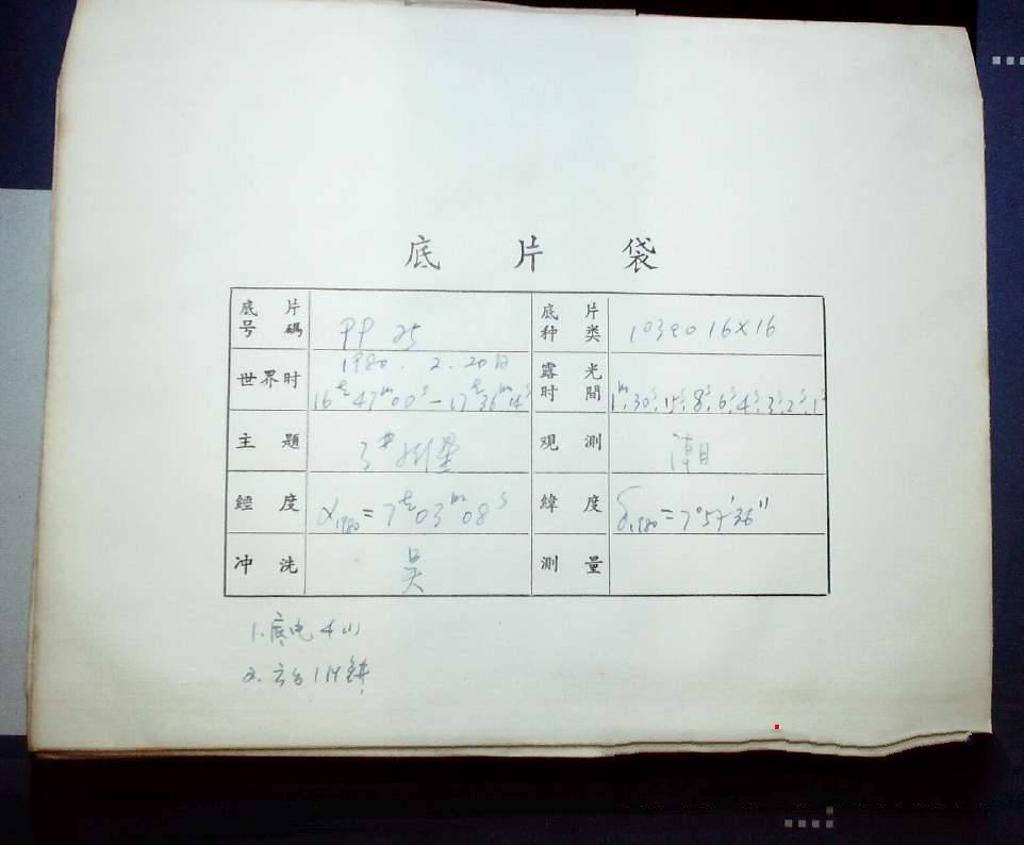 底 片 袋
底片号碼 PP 25 底片种类 103aO 16×16
世界时 1980. 2. 20日 露光时間
16h 47m 00s — 17h 36m 14s 1m, 30s, 15s, 8s, 6s, 4s, 3s, 2s, 1s
主 題 3# 观 測
經 度 α1980 = 7h 03m 08s 緯 度 δ1980 = 7° 57′ 36″
冲 洗 吴 測 量
1.
2.